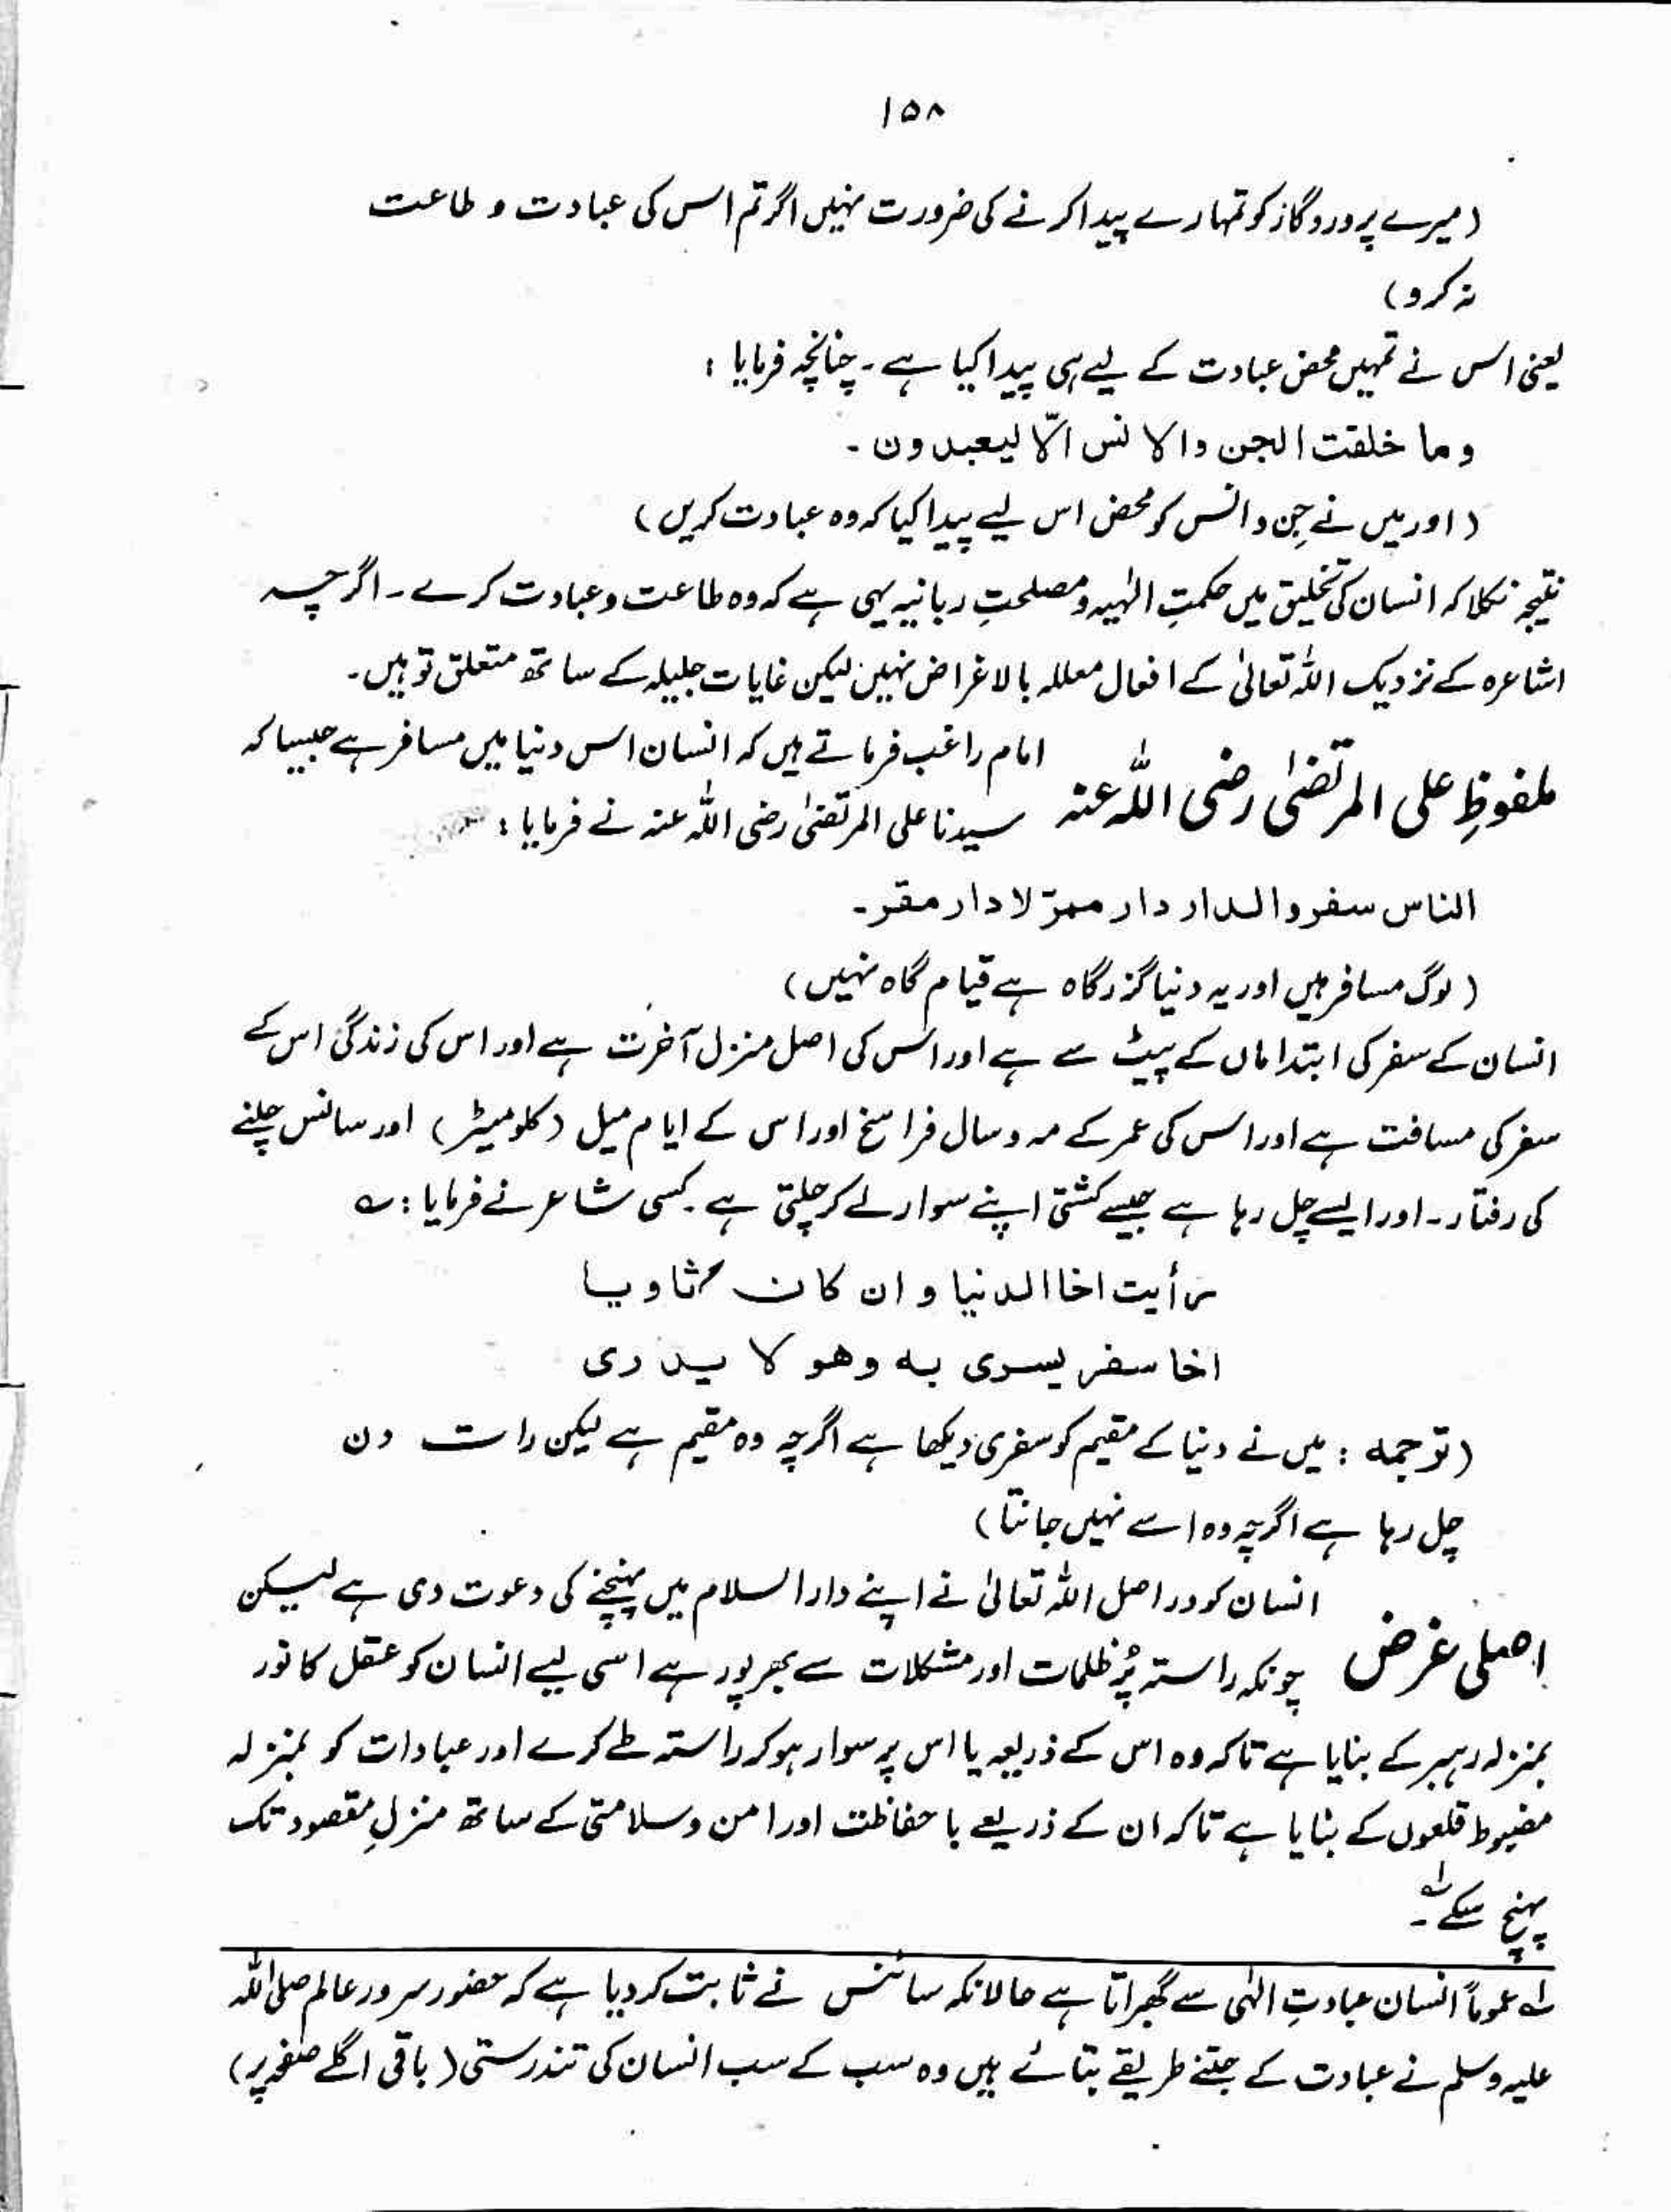 ۱۵۸
(میرے پروردگار کو تمہارے پیدا کرنے کی ضرورت نہیں اگر تم اس کی عبادت و طاعت
نہ کرو)
یعنی اس نے تمہیں محض عبادت کے لیے ہی پیدا کیا ہے۔ چنانچہ فرمایا :
وما خلقت الجن والانس الّا لیعبدون۔
(اور میں نے جِن و انس کو محض اس لیے پیدا کیا کہ وہ عبادت کریں)
نتیجہ نکلا کہ انسان کی تخلیق میں حکمتِ الٰہیہ و مصلحتِ ربانیہ یہی ہے کہ وہ طاعت و عبادت کرے۔ اگرچہ
اشاعرہ کے نزدیک اللہ تعالیٰ کے افعال معللہ بالاغراض نہیں لیکن غایات جلیلہ کے ساتھ متعلق تو ہیں۔
ملفوظِ علی المرتضیٰ رضی اللہ عنہ امام راغب فرماتے ہیں کہ انسان اس دنیا میں مسافر ہے جیسا کہ
سیدنا علی المرتضیٰ رضی اللہ عنہ نے فرمایا :
الناس سفر والدار دار ممرّ لا دار مقر۔
(لوگ مسافر ہیں اور یہ دنیا گزرگاہ ہے قیام گاہ نہیں)
انسان کے سفر کی ابتدا ماں کے پیٹ سے ہے اور اس کی اصل منزل آخرت ہے اور اس کی زندگی اس کے
سفر کی مسافت ہے اور اس کی عمر کے مہ و سال فراسخ اور اس کے ایام میل (کلومیٹر) اور سانس چلنے
کی رفتار۔ اور ایسے چل رہا ہے جیسے کشتی اپنے سوار لے کر چلتی ہے۔ کسی شاعر نے فرمایا : ؎
رأیت اخا الدنیا و ان کان ثاویا
اخا سفر یسری بہ وھو لا یدری
(ترجمہ : میں نے دنیا کے مقیم کو سفری دیکھا ہے اگرچہ وہ مقیم ہے لیکن رات دن
چل رہا ہے اگرچہ وہ اسے نہیں جانتا)
اصلی غرض انسان کو دراصل اللہ تعالیٰ نے اپنے دار السلام میں پہنچنے کی دعوت دی ہے لیکن
چونکہ راستہ پُر ظلمات اور مشکلات سے بھرپور ہے اسی لیے انسان کو عقل کا نور
بمنزلہ رہبر کے بنایا ہے تاکہ وہ اس کے ذریعہ یا اس پر سوار ہو کر راستہ طے کرے اور عبادات کو بمنزلہ
مضبوط قلعوں کے بنایا ہے تاکہ ان کے ذریعے با حفاظت اور امن و سلامتی کے ساتھ منزلِ مقصود تک
پہنچ سکے لہ۔
لہ عموماً انسان عبادتِ الٰہی سے گھبراتا ہے حالانکہ سائنس نے ثابت کر دیا ہے کہ حضور سرور عالم صلی اللہ
علیہ وسلم نے عبادت کے جتنے طریقے بتائے ہیں وہ سب کے سب انسان کی تندرستی (باقی اگلے صفحہ پر)